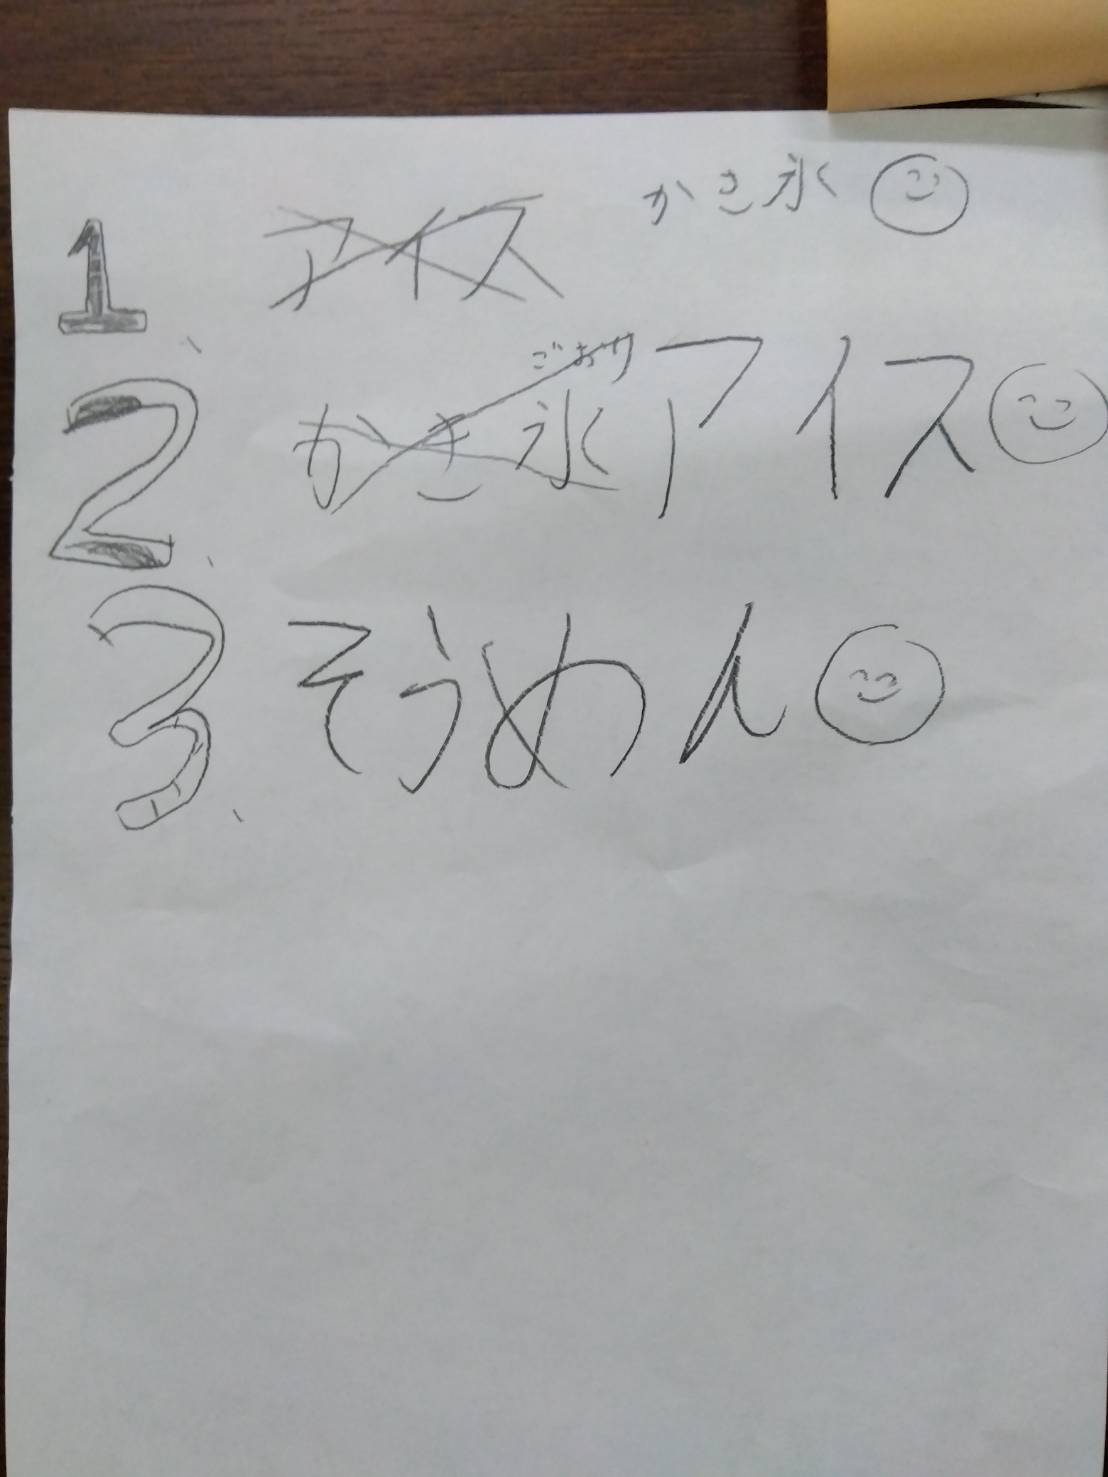 1、 アイス かき氷
2、 かき氷 ごおり アイス
3、 そうめん